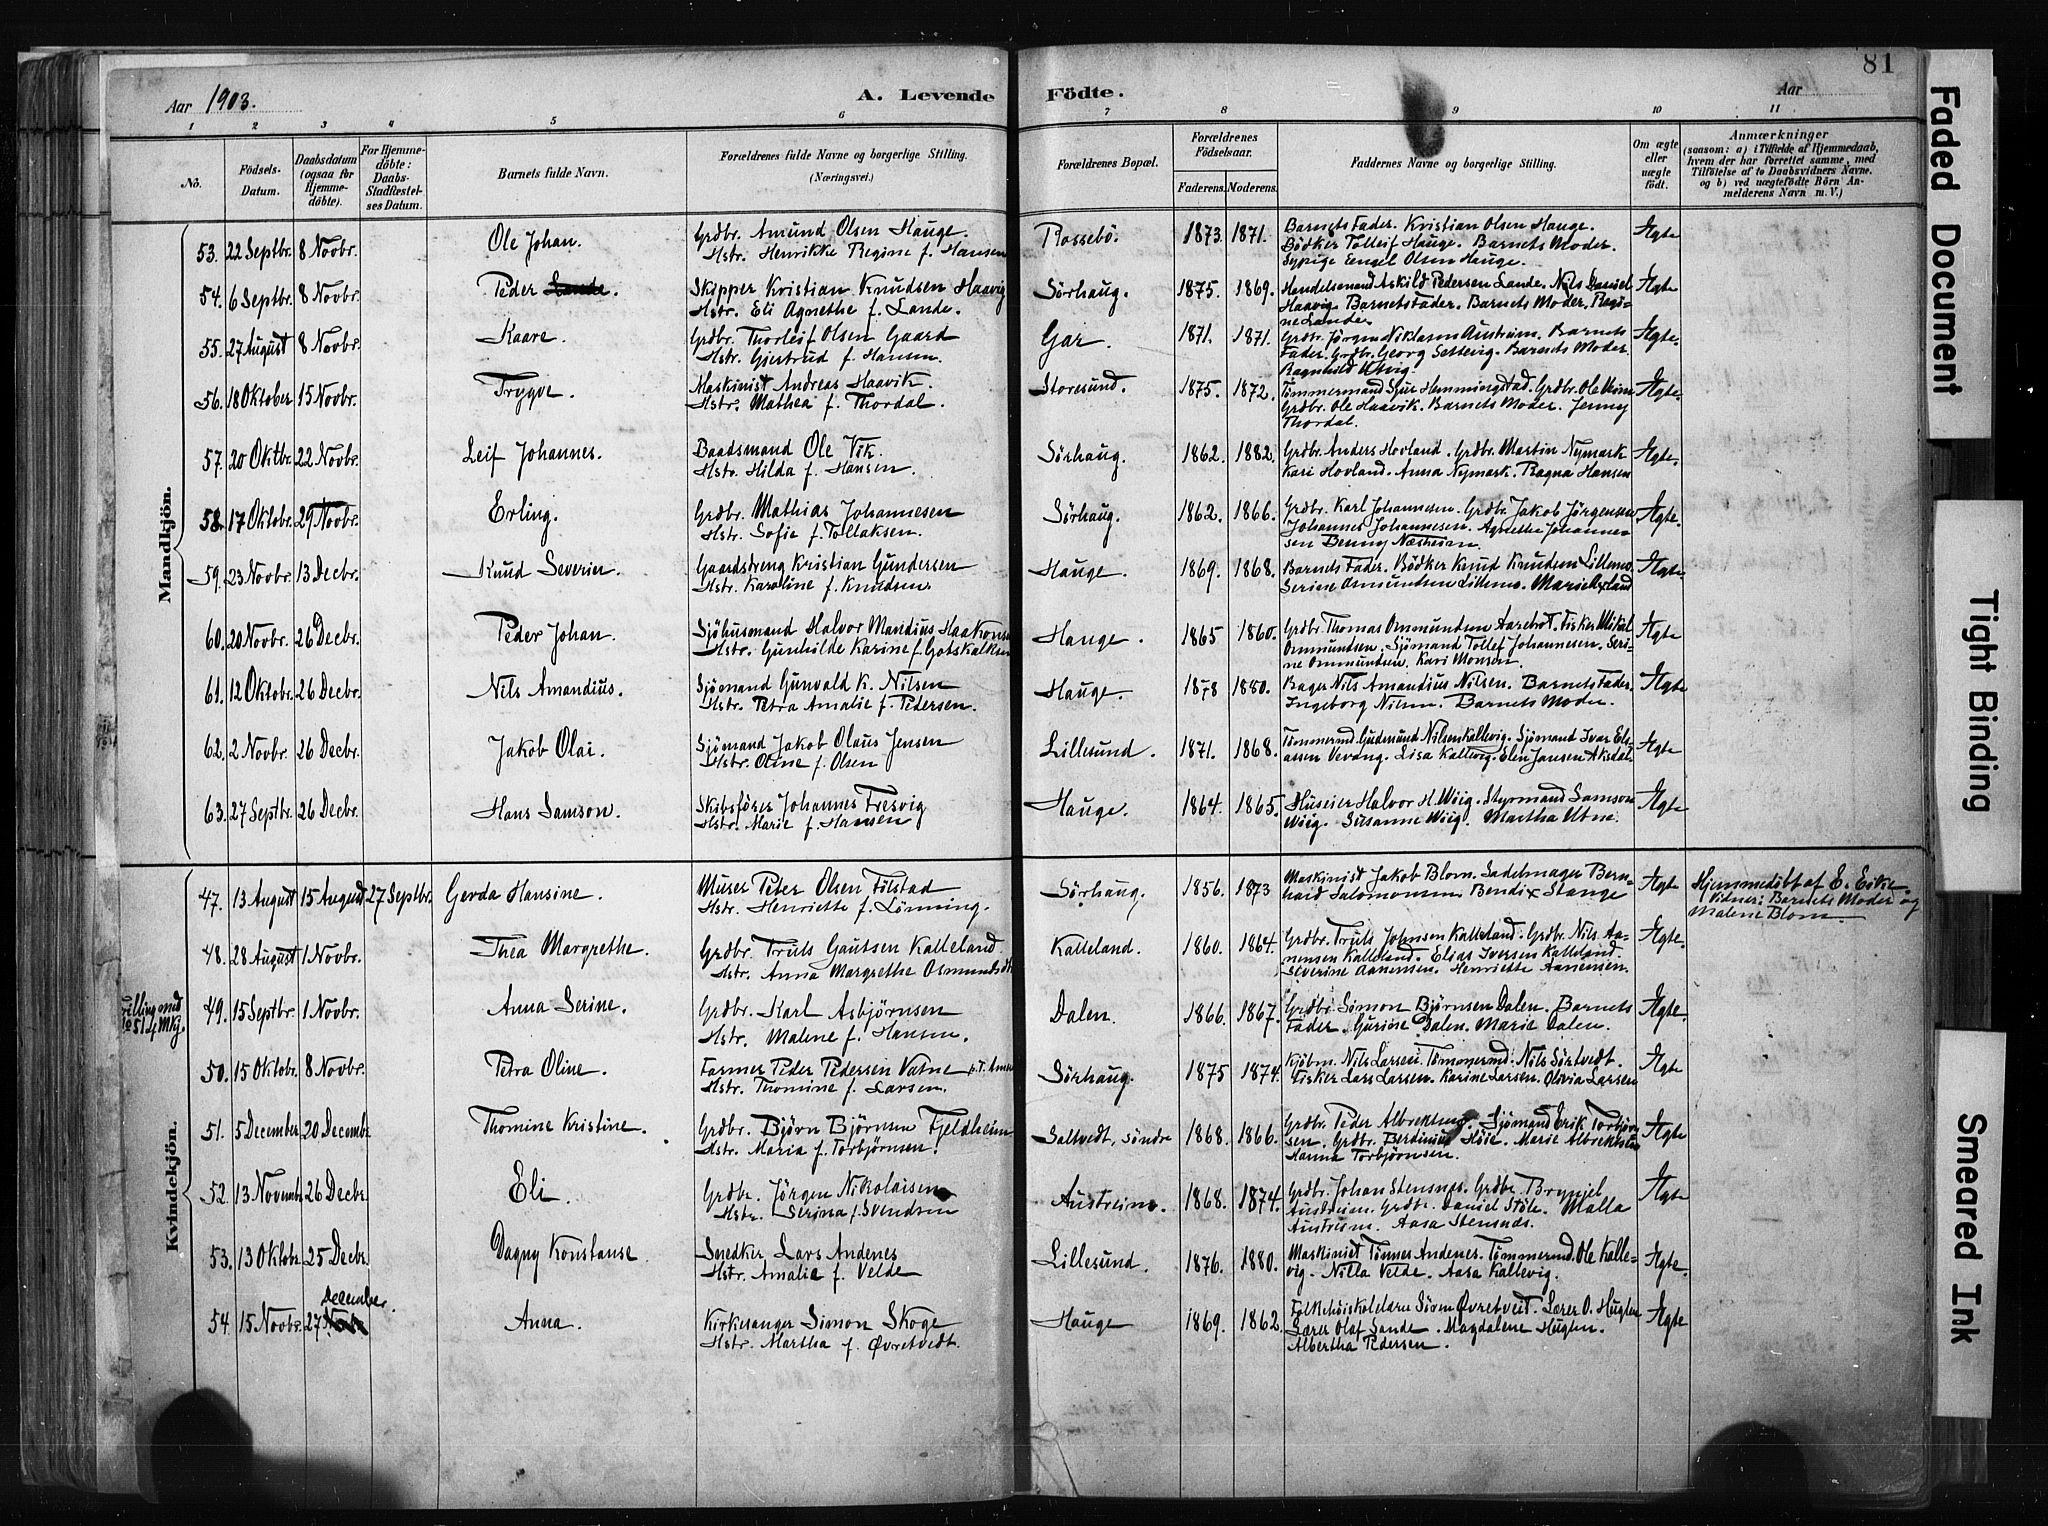 81
Aar 1903.
A. Levende Födte.
Aar
1 2 3 4 5 6 7 8 9 10 11
No.
Födsels-Datum.
Daabsdatum (ogsaa for Hjemme-döbte).
For Hjemme-döbte: Daabs-Stadfæstel-ses Datum.
Barnets fulde Navn.
Forældrenes fulde Navne og borgerlige Stilling. (Næringsvei.)
Forældrenes Bopæl.
Forældrenes Födselsaar.
Faderens. Moderens.
Faddernes Navne og borgerlige Stilling.
Om ægte eller uægte födt.
Anmærkninger
(saasom: a) i Tilfælde af Hjemmedaab, hvem der har forrettet samme, med Tilföielse af to Daabsvidners Navne. og b) ved uægtefödte Börn An-melderens Navn m. V.)
Mandkjön.
53. 22 Septbr. 8 Novbr. Ole Johan. Grdbr. Amund Olsen Hauge. Rossebö. 1873. 1871. Barnets Fader. Kristian Olsen Hauge. Ægte
Hstr. Henrikke Regine f. Hansen Bödker Tolleif Hauge. Barnets Moder.
Sypige Engel Olsen Hauge.
54. 6 Septbr. 8 Novbr. Peder Lande. Skipper Kristian Knudsen Haavig Sörhaug. 1875. 1869. Handelsmand Askild Pedersen Lande. Nils Daniel Ægte
Hstr. Eli Agnethe f. Lande. Haavig. Barnets Fader. Barnets Moder. Ragi-
ne Lande.
55. 27 August 8 Novbr. Kaare. Grdbr. Thorleif Olsen Gaard Gar. 1871. 1871. Grdbr. Jörgen Niklasen Austreim. Barnets Ægte.
Hstr. Gjertrud f. Hansen. Fader. Grdbr. Georg Settevig. Barnets Moder.
Ragnhild Utvig.
56. 18 Oktober 15 Novbr. Trygve. Maskinist Andreas Haavik. Storesund. 1875. 1872. Tömmermand Sjur Hemmingstad. Grdbr. Ole Ægte.
Hstr. Mathea f. Thordal. Grdbr. Ole Haavik. Barnets Moder. Jenny
Thordal.
57. 20 Oktbr. 22 Novbr. Leif Johannes. Baadsmand Ole Vik. Sörhaug. 1862. 1882. Grdbr. Anders Hovland. Grdbr. Martin Nymark Ægte.
Hstr. Hilda f. Hansen. Kari Hovland. Anna Nymark. Ragna Hansen
58. 17 Oktobr. 29 Novbr. Erling. Grdbr. Mathias Johannesen Sörhaug. 1862. 1866. Grdbr. Karl Johannesen. Grdbr. Jakob Jörgensen Ægte.
Hstr. Sofie f. Tollaksen. Johannes Johannesen. Agnethe Johannes-
sen Benny Næsheim.
59. 23 Novbr. 13 Decbr. Knud Severin. Gaardsdreng Kristian Gundersen Hauge. 1869. 1868. Barnets Fader. Bödker Knud Knudsen Lillenes. Ægte.
Hstr. Karoline f. Knudsen. Serine Osmundsen Lillenes. Marie
60. 20 Novbr. 26 Decbr. Peder Johan. Sjöhusmand Halvor Mandius Haakonsen Hauge. 1865 1860. Grdbr. Thomas Ommundsen Aarebrot. Fisker Mikal Ægte
Hstr. Gunhilde Karine f. Gotskalksen Ommundsen. Sjömand Tollef Johannesen. Seri-
ne Ommundsen. Kari Monsen.
61. 12 Oktobr. 26 Decbr. Nils Amandius. Sjömand Gunvald K. Nilsen Hauge. 1878 1880. Bager Nils Amandius Nilsen. Barnets Fader. Ægte
Hstr. Petra Amalie f. Pedersen. Ingeborg Nilsen. Barnets Moder.
62. 2 Novbr. 26 Decbr. Jakob Olai. Sjömand Jakob Olaus Jensen Lillesund. 1871. 1868. Tömmermd. Gudmund Nilsen Kallevig. Sjömand Ivar Eli- Ægte
Hstr. Oline f. Olsen assen Vevang. Lisa Kallevig. Elen Jansen Aksdal
63. 27 Septbr. 26 Decbr. Hans Samson. Skibsförer Johannes Tresvig Hauge. 1864. 1865. Huseier Halvor H. Wiig. Styrmand Samson Ægte
Hstr. Marie f. Hansen Wiig. Susanne Wiig. Martha Utne.
Kvindekjön.
47. 13 August 15 August 27 Septbr. Gerda Hansine. Murer Peter Olsen Tilstad Sörhaug. 1856. 1873 Maskinist Jakob Blom. Sadelmager Bern- Ægte Hjemmedöbt af E. Eike.
Hstr. Henriette f. Lönning. hard Salomonsen Bendix Stange Vidner: Barnets Moder og
Malene Blom.
48. 28 August 1 Novbr. Thea Margrethe. Grdbr. Truls Gautsen Kalleland Kalleland. 1860. 1864. Grdbr. Truls Johnsen Kalleland. Grdbr. Nils Aa- Ægte.
Hstr. Anna Margrethe Osmundsdtr. nensen Kalleland. Elias Iversen Kalleland.
Severine Aanensen. Henriette Aanensen.
illing med
No 51 4 Mkj.
49. 15 Septbr. 1 Novbr. Anna Serine. Grdbr. Karl Asbjörnsen Dalen. 1866. 1867. Grdbr. Simon Bjørnsen Dalen. Barnets Ægte.
Hstr. Malene f. Hansen. Fader. Gurine Dalen. Marie Dalen.
50. 15 Oktobr. 8 Novbr. Petra Oline. Farmer Peder Pedersen Vatne p.T. Amer Sörhaug. 1875 1874. Kjöbm. Nils Larsen. Tömmermd. Nils Sörtvedt. Ægte
Hstr. Thomine f. Larsen. Fisker Lars Larsen. Karine Larsen. Olivia Larsen
51. 5 December 20 December Thomine Kristine. Grdbr. Bjørn Bjørnsen Fjeldheim Saltvedt, söndre 1868. 1866. Grdbr. Peder Albrektsen. Sjömand Erik Torbjørn- Ægte
Hstr. Maria f. Torbjørnsen. sen. Grdbr. Berdinius Höie. Marie Albrektsen
Hanna Torbjørnsen.
52. 13 Novembr 26 Decbr. Eli. Grdbr. Jörgen Nikolaisen Austreim. 1868. 1874. Grdbr. Johan Stensnes. Grdbr. Brynjel Ægte
Hstr. Serina f. Svendsen Austreim. Grdbr. Daniel Stöle. Malla
Austreim. Aasa Stensnæs.
53. 13 Oktobr. 25 Decbr. Dagny Konstanse Snedker Lars Andenes Lillesund. 1876. 1880. Maskinist Tönnes Andenes. Tömmermd. Ole Kalle- Ægte.
Hstr. Amalie f. Velde vig. Nilla Velde. Aasa Kallevig.
December.
54 15 Novbr. 27 Novbr. Anna. Kirkesanger Simon Skoge Hauge 1869. 1862. Folkehöiskolelærer Sören Øvretveit. Lærer O. Huglen Ægte
Hstr. Martha f. Øvretvedt. Lærer Olaf Sande. Magdalene Huglen.
Albertha Pedersen.
Faded Document
Tight Binding
Smeared Ink